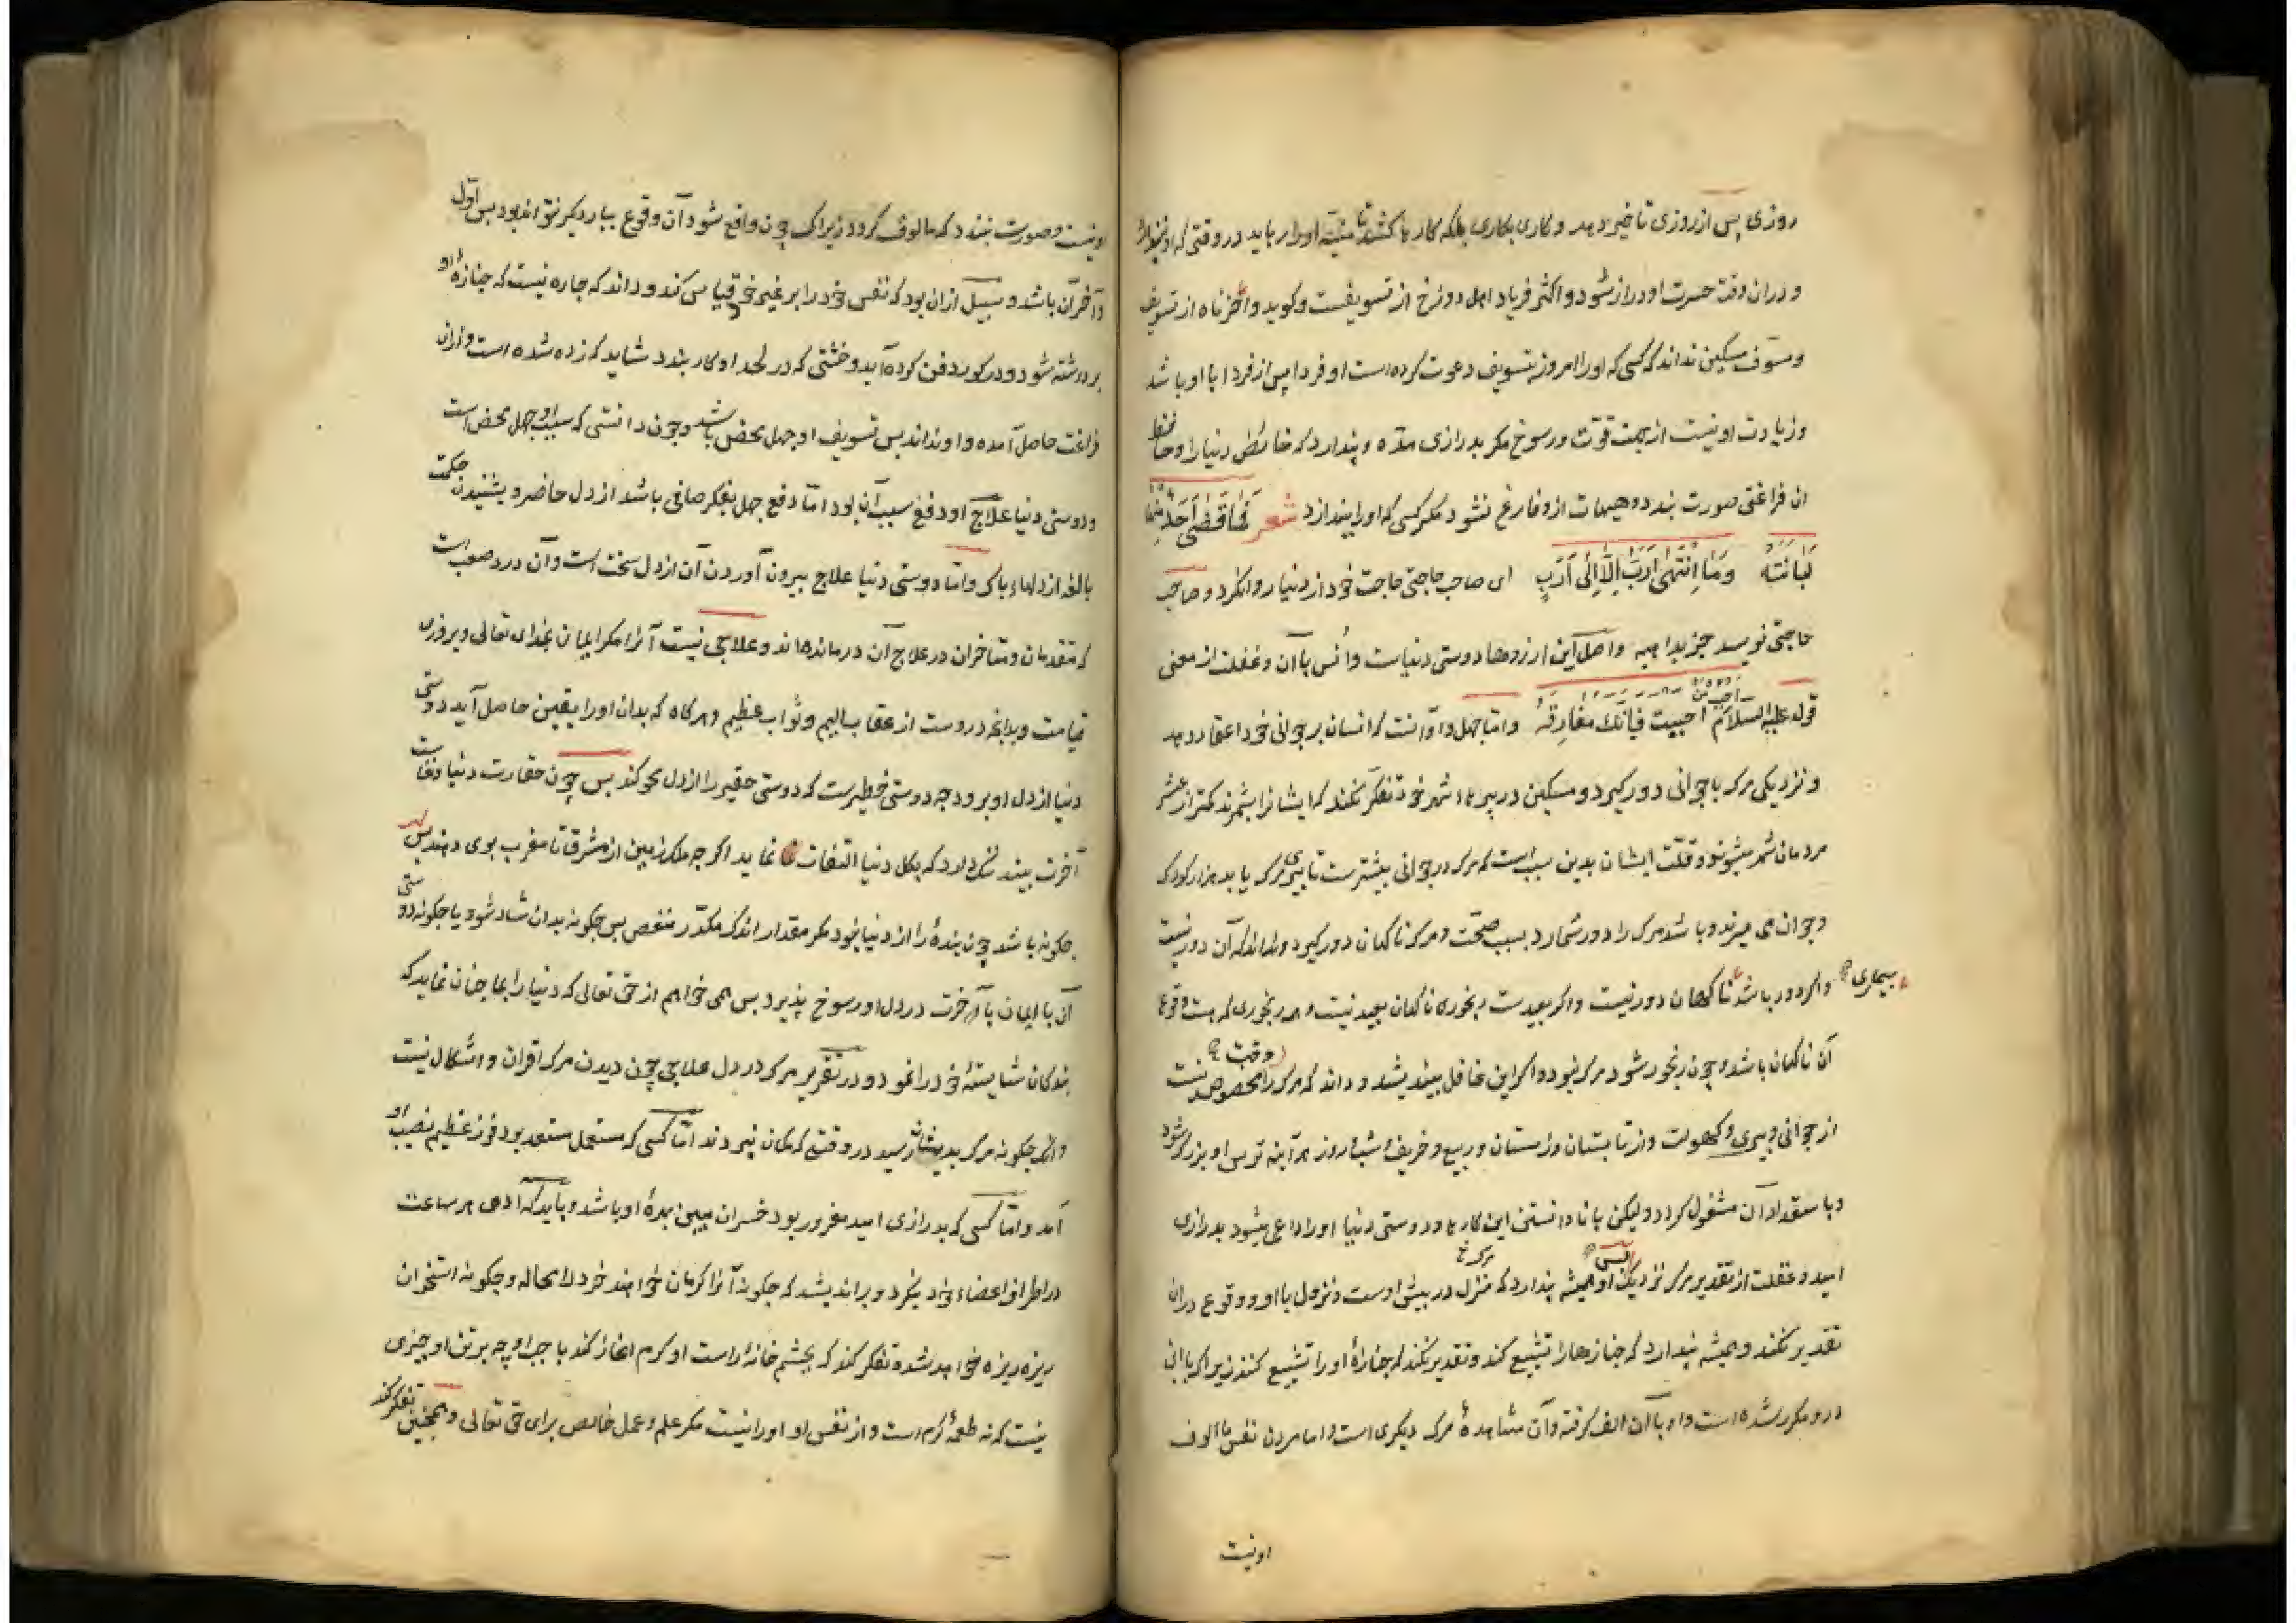 روزی پس از روزی تاخیر دهد و کاری بکاری بلکه کارها کشد تا منیّه اورا رباید در وقتی که او نپندارد
و دران وقت حسرت او دراز شود و اکثر فریاد اهل دوزخ از تسویفست و کوید وا حزناه از تسویف
و مسوّف مسکین نداند که کسی که اورا امروز بتسویف دعوت کرده است او فردا پس از فردا با او باشد
و زیادت او نیست از جهت قوّت و رسوخ مکر بدرازی مدّه و پندارد که خائض دنیا را و حافظ
ان فراغتی صورت بندد و هیهات ازو فارغ نشود مکر کسی که اورا بیندازد شعر فَمَا قَضَى أَحَدٌ مِنْهَا
لُبَانَتَهُ وَمَا انْتَهَى أَرَبٌ إِلَّا إِلَى أَرَبِ ای صاحب حاجتی حاجت خود از دنیا روا نکرد و صاحب
حاجتی نرسید جز بداهیه و اصل این ارزوها دوستی دنیاست و اُنس بآن و غفلت از معنی
قوله علیه السلام أحبب من أحببت فإنك مفارقه و امّا جهل و آنست که انسان بر جوانی خود اعتماد دهد
و نزدیکی مرک با جوانی دور کیرد و مسکین در پیرهای شهر خود تفکّر نکند که ایشانرا بشمرند کمتر از عشر
مردمان شهر میشوند و قلّت ایشان بدین سبب است که مرک در جوانی بیشترست تا پیری مرک یابد هزار کودک
و جوان می میرند و باشد مرک را دور شمارد بسبب صحّت و مرک ناکهان دور کیرد و نداند که آن دور نیست
و اکر دور باشد بیماری ناکهان دور نیست و اکر بعیدست رنجوری ناکهان بعید نیست و هر رنجوری که هست وقوع
آن ناکهان باشد و چون رنجور شود مرک نبود و اکر این غافل بیندیشد و داند که مرک را وقت مخصوص نیست
از جوانی و پیری و کهولت و از تابستان و زمستان و ربیع و خریف و شب و روز هر آینه ترس او بزرک شود
و باستعداد آن مشغول کردد ولیکن با نادانستن این کارها و دوستی دنیا اورا داعی میشود بدرازی
امید و غفلت از تقدیر مرک نزدیک پس او همیشه پندارد که مرک منزل در پیش اوست و نزول با او و وقوع دران
تقدیر نکند و همیشه پندارد که جنازها را تشییع کند و تقدیر نکند که جنازهٔ اورا تشییع کنند زیراکه باانی
درو مکرر شده است و او بآن الف کرفته و آن مشاهدهٔ مرک دیکری است و اما مردن نفس مالوف
اونیست
او نیست و صورت نبندد که مالوف کردد زیراکه چون واقع شود آن وقوع ببار دیکر نتواند بود پس اوّل
و آخر آن باشد و سبیل ازان بود که نفس خود را بر غیر خود قیاس کند و داند که چاره نیست که جنازهٔ او
برداشته شود و در کور دفن کرده آید و خشتی که در لحد او کار بندد شاید که زده شده است و ازان
فراغت حاصل آمده و او نداند پس تسویف او جهل محض باشد و چون دانستی که سبب او جهل محض است
و دوستی دنیا علاج او دفع سبب آن بود امّا دفع جهل بفکر صافی باشد از دل حاضر و بشنیدن حکمت
بالغه از دلهاء پاک و امّا دوستی دنیا علاج بیرون آوردن آن از دل سخت است و آن درد صعب است
که متقدمان و متاخران در علاج آن درمانده اند و علاجی نیست آنرا مکر ایمان بخدای تعالی و بروزی
قیامت و بدانچه دروست از عقاب الیم و ثواب عظیم و هرکاه که بدان اورا یقین حاصل آید دوستی
دنیا از دل او برود چه دوستی خطیرست که دوستی حقیر را از دل محو کند پس چون حقارت دنیا و نفاست
آخرت بیند ننک دارد که بکل دنیا التفات نماید اکرچه ملک زمین از مشرق تا مغرب بوی دهند پس
چکونه باشد چون بندهٔ را از دنیا نبود مکر مقدار اندک مکدّر منغص پس چکونه بدان شاد شود یا چکونه دوستی
آن با ایمان بآخرت در دل او رسوخ پذیرد پس می خواهم از حق تعالی که دنیا را بما چنان نماید که
بندکان شایستهٔ خود را نمود و در تقریر مرک در دل علاجی چون دیدن مرک اقران و اشکال نیست
و انکه چکونه مرک بدیشان رسید در وقتی که کمان نبردند امّا کسی که مستعمل مستعد بود فوز عظیم نصیب او
آمد و امّا کسی که بدرازی امید مغرور بود خسران مبین بهرهٔ او باشد و باید که آدمی هر ساعت
در اطراف اعضاء خود بنکرد و براندیشد که چکونه آنرا کرمان خواهند خورد لا محاله و چکونه استخوان
ریزه ریزه خواهد شد و تفکر کند که بچشم خانهٔ راست او کرم اغاز کند یا چپ او چه برتن او چیزی
نیست که نه طعمهٔ کرم است و از نفس او اورا نیست مکر علم و عمل خالص برای حق تعالی و همچنین تفکر کند